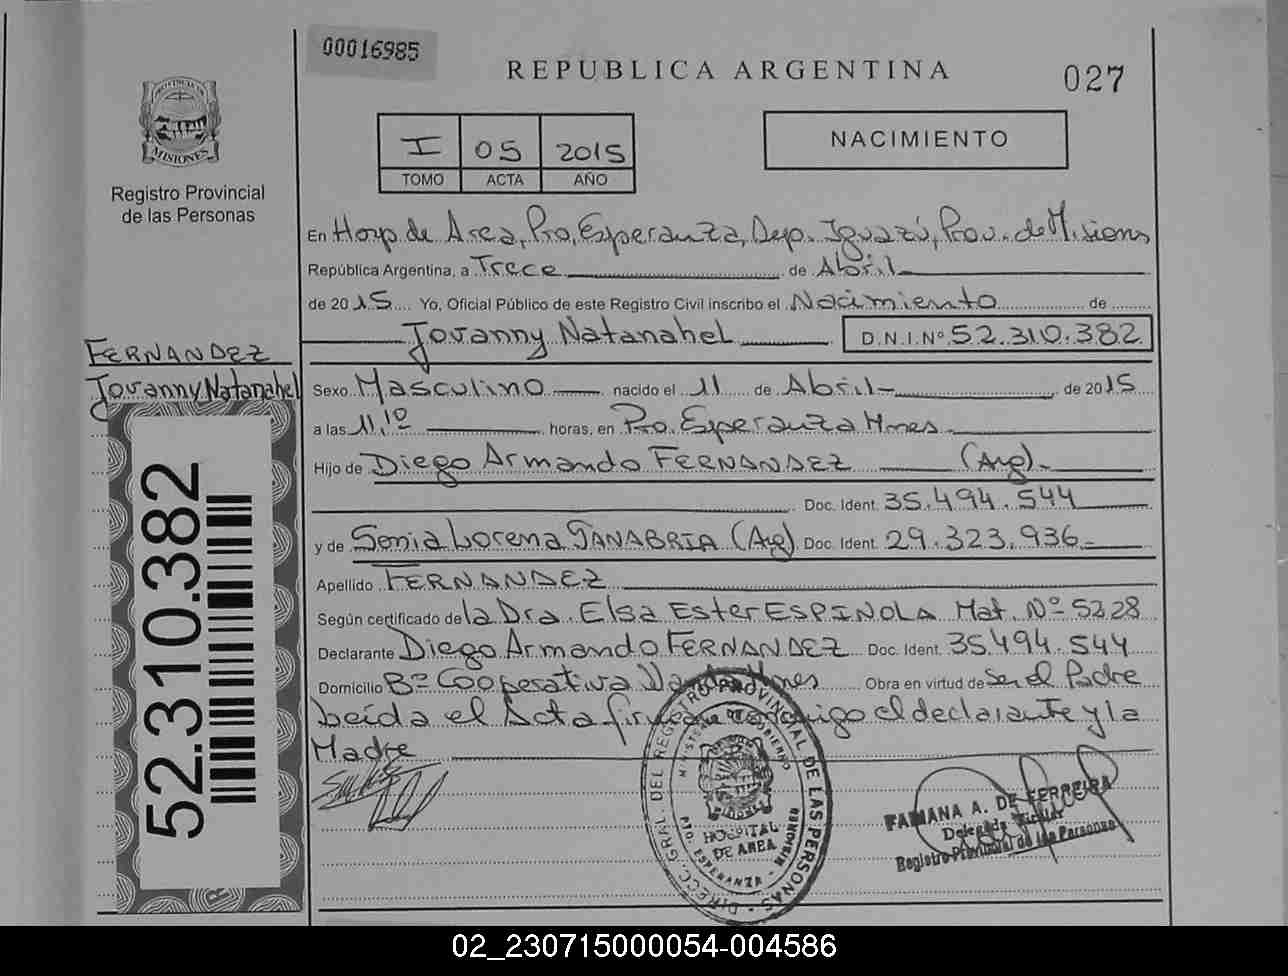 00016985
REPUBLICA ARGENTINA
027
PROVINCIA DE
MISIONES
Registro Provincial
de las Personas
I 05 2015
TOMO ACTA AÑO
NACIMIENTO
En Hosp. de Area, Pto. Esperanza, Dep. Iguazú, Prov. de Misiones
República Argentina, a Trece de Abril
de 2015 Yo, Oficial Público de este Registro Civil inscribo el Nacimiento de
Jovanny Natanahel D.N.I.Nº 52.310.382
FERNANDEZ
Jovanny Natanahel
Sexo Masculino nacido el 11 de Abril de 2015
a las 11,10 horas, en Pto. Esperanza Mnes
Hijo de Diego Armando FERNANDEZ (Arg)
Doc. Ident. 35.494.544
y de Sonia Lorena SANABRIA (Arg) Doc. Ident. 29.323.936
Apellido FERNANDEZ
Según certificado de la Dra. Elsa Ester ESPINOLA Mat. Nº 5228
Declarante Diego Armando FERNANDEZ Doc. Ident. 35.494.544
Domicilio Bº Cooperativa Wanda Mnes Obra en virtud de Ser el Padre
Leída el Acta firman conmigo el declarante y la
Madre
52.310.382
DIRECC. GRAL. DEL REGISTRO PROVINCIAL DE LAS PERSONAS
MINISTERIO DE GOBIERNO
HOSPITAL
DE AREA
PTO. ESPERANZA - MISIONES
FABIANA A. DE FERREIRA
Delegada Titular
Registro Provincial de las Personas
02_230715000054-004586